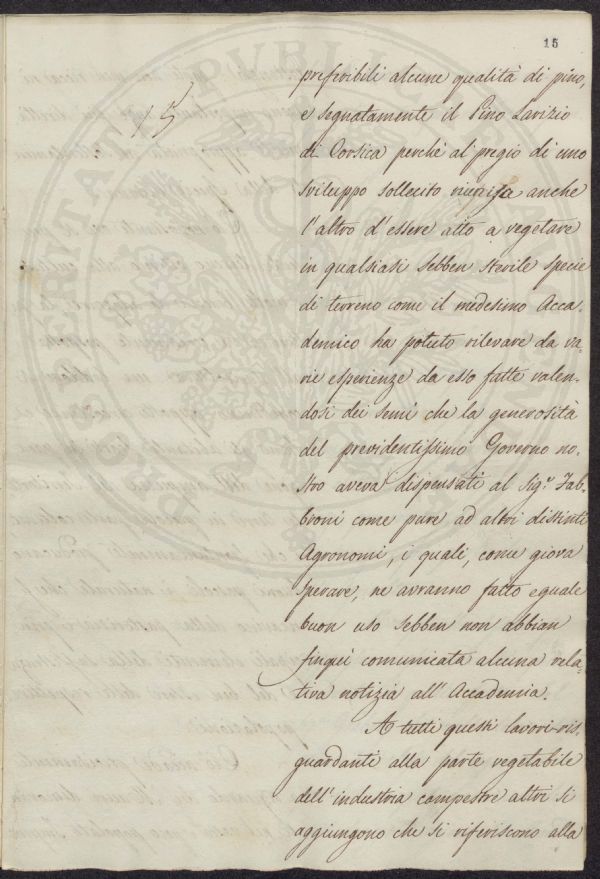 15
15
preferibili alcune qualità di pino,
e segnatamente il Pino Larizio
di Corsica perchè al pregio di uno
sviluppo sollecito riunisce anche
l'altro d'essere atto a vegetare
in qualsiasi sebben sterile specie
di terreno come il medesimo Acca-
demico ha potuto rilevare da va-
rie esperienze da esso fatte valen-
dosi dei semi che la generosità
del previdentissimo Governo no-
stro aveva dispensati al Sigr. Fab-
broni come pure ad altri distinti
Agronomi, i quali, come giova
sperare, ne avranno fatto eguale
buon uso sebben non abbian
finquì comunicata alcuna rela-
tiva notizia all'Accademia.
A tutti questi lavori ris-
guardanti alla parte vegetabile
dell'industria campestre altri si
aggiungono che si riferiscono alla